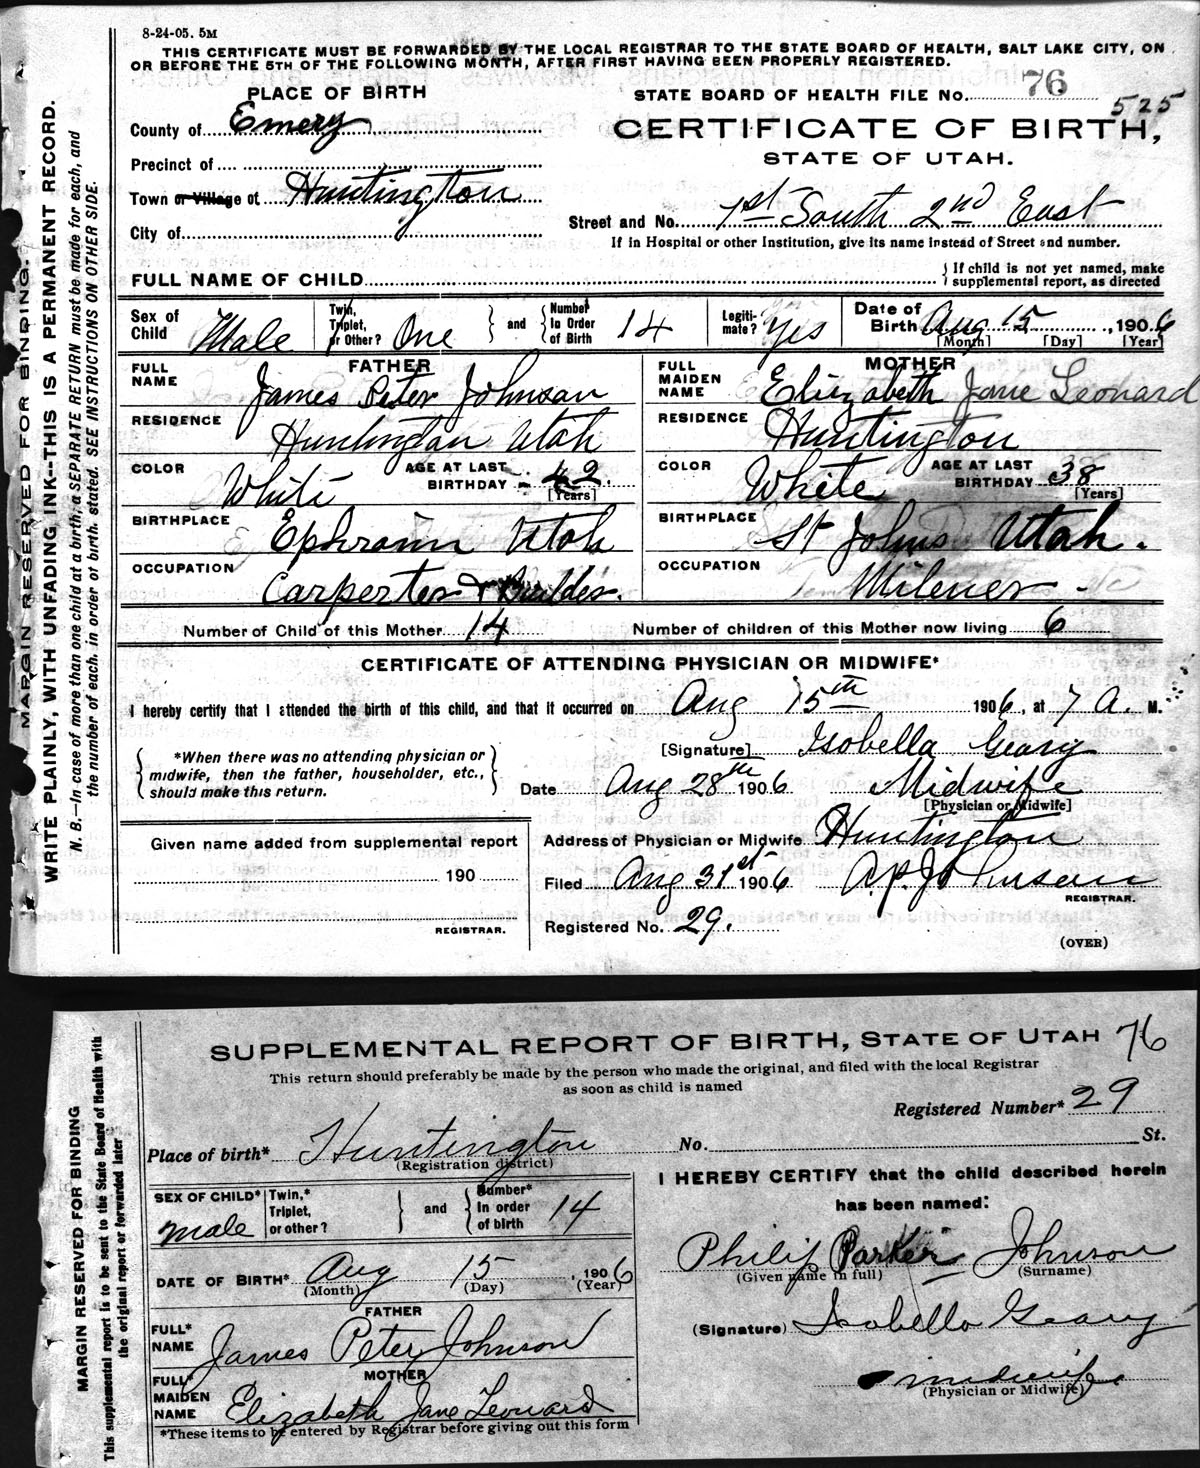 8-24-05. 5M
THIS CERTIFICATE MUST BE FORWARDED BY THE LOCAL REGISTRAR TO THE STATE BOARD OF HEALTH, SALT LAKE CITY, ON
OR BEFORE THE 5TH OF THE FOLLOWING MONTH, AFTER FIRST HAVING BEEN PROPERLY REGISTERED.
PLACE OF BIRTH
STATE BOARD OF HEALTH FILE No. 76 525
County of Emery
CERTIFICATE OF BIRTH,
STATE OF UTAH.
Precinct of
Town or Village of Huntington
Street and No. 1st South 2nd East
City of
If in Hospital or other Institution, give its name instead of Street and number.
FULL NAME OF CHILD
If child is not yet named, make
supplemental report, as directed
Sex of Child Male
Twin, Triplet, or Other? One
and
Number In Order of Birth 14
Legiti-mate? Yes
Date of Birth Aug 15, 1906
[Month] [Day] [Year]
FATHER
FULL NAME James Peter Johnson
RESIDENCE Huntington Utah
COLOR White
AGE AT LAST BIRTHDAY 42.
[Years]
BIRTHPLACE Ephraim Utah
OCCUPATION Carpenter & Builder.
MOTHER
FULL MAIDEN NAME Elizabeth Jane Leonard
RESIDENCE Huntington
COLOR White
AGE AT LAST BIRTHDAY 38
[Years]
BIRTHPLACE St Johns Utah.
OCCUPATION Milener
Number of Child of this Mother 14
Number of children of this Mother now living 6
CERTIFICATE OF ATTENDING PHYSICIAN OR MIDWIFE*
I hereby certify that I attended the birth of this child, and that it occurred on Aug 15th 1906, at 7 A. M.
*When there was no attending physician or
midwife, then the father, householder, etc.,
should make this return.
[Signature] Isobella Geary
Date Aug 28th 1906 Midwife
[Physician or Midwife]
Given name added from supplemental report
190
REGISTRAR.
Address of Physician or Midwife Huntington
Filed Aug 31st 1906 A.P. Johnson
REGISTRAR.
Registered No. 29.
(OVER)
MARGIN RESERVED FOR BINDING.
WRITE PLAINLY, WITH UNFADING INK--THIS IS A PERMANENT RECORD.
N. B.—In case of more than one child at a birth, a SEPARATE RETURN must be made for each, and
the number of each, in order of birth, stated. SEE INSTRUCTIONS ON OTHER SIDE.
SUPPLEMENTAL REPORT OF BIRTH, STATE OF UTAH 76
This return should preferably be made by the person who made the original, and filed with the local Registrar
as soon as child is named
Registered Number* 29
Place of birth* Huntington No. St.
(Registration district)
SEX OF CHILD* male
Twin,* Triplet, or other?
and
Number* In order of birth 14
DATE OF BIRTH* Aug 15, 1906
(Month) (Day) (Year)
FATHER
FULL* NAME James Peter Johnson
MOTHER
FULL* MAIDEN NAME Elizabeth Jane Leonard
*These items to be entered by Registrar before giving out this form
I HEREBY CERTIFY that the child described herein
has been named:
Philip Parker Johnson
(Given name in full) (Surname)
(Signature) Isabella Geary
midwife
(Physician or Midwife)
MARGIN RESERVED FOR BINDING
This supplemental report is to be sent to the State Board of Health with
the original report or forwarded later